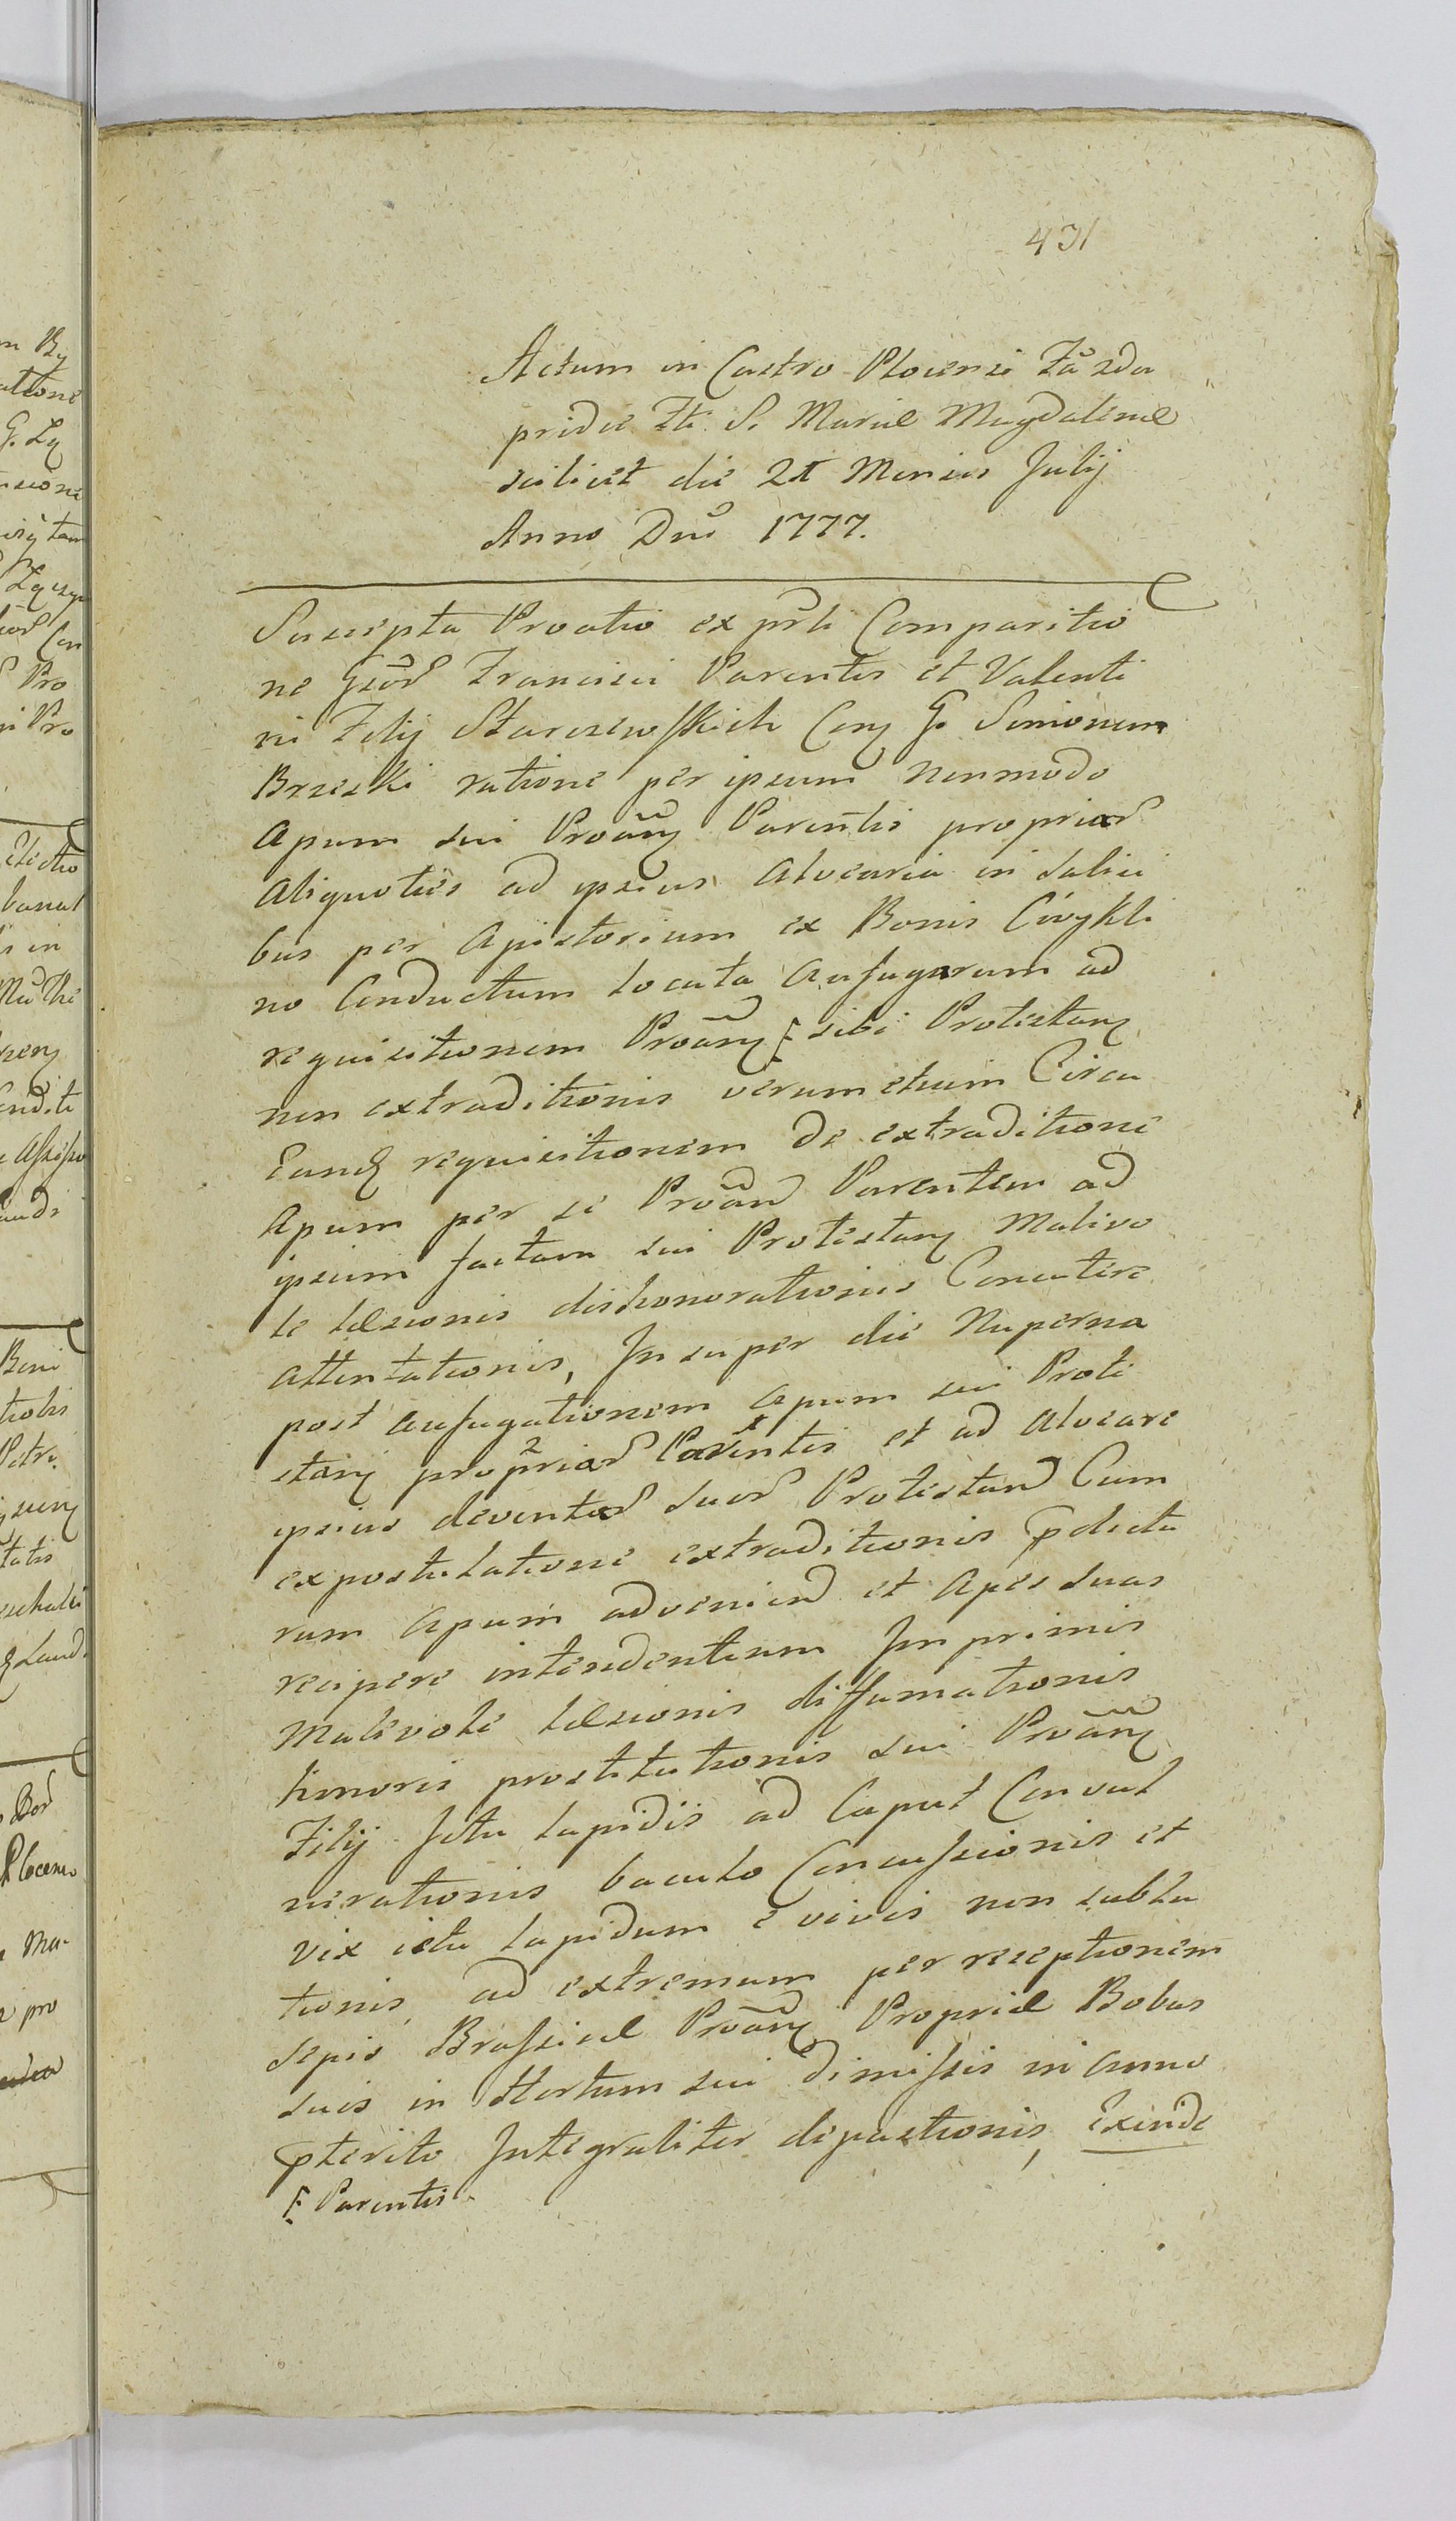 431
Actum in Castro Plocensi Fa 2da
pridie Fti S. Mariæ Magdalenæ
scilicet die 21 Mensis Julij
Anno Dni 1777.
Suscepta Proatio ex prti Comparitio
ne Gsor Francisci Parentis et Valenti
ni Filij Starczewsskich Con G. Simonem
Brzeski ratione per ipsum nonmodo
Apum sui Proan Parentis propriar
aliquoties ad ipsius alvearia in salici
bus per Apistorium ex Bonis Cwykli
no Conductum locata aufugarum ad
requisitionem Proan ⁝ sibi Protestan
non extraditionis verum etiam Circa
Eand requisitionem de extraditione
Apum per se Proan Parentem ad
ipsum factam sui Protestan Malivo
le læsionis dishonorationis Concutere
attentationis, Insuper die Nuperna
post aufugationem apum sui Prote
stan propriar 2 Parentis 1 et ad alveare
ipsius deventar suor Protestan Cum
expostulatione extraditionis pdicta
rum Apum advenien et Apes suas
recipere intendentium Imprimis
Malevole læsionis diffamationis
honoris prostitutionis sui Proan
Filij Ictu lapidis ad Caput Convul
nerationis baculo Concussionis et
vix ictu lapidum e vivis non subla
tionis, ad extremum per receptionem
sepis Brassicæ Proan Propriæ Bobus
suis in Hortum sui dimissis in anno
pterito Integraliter depastionis, Exinde
⁝ Parentis.